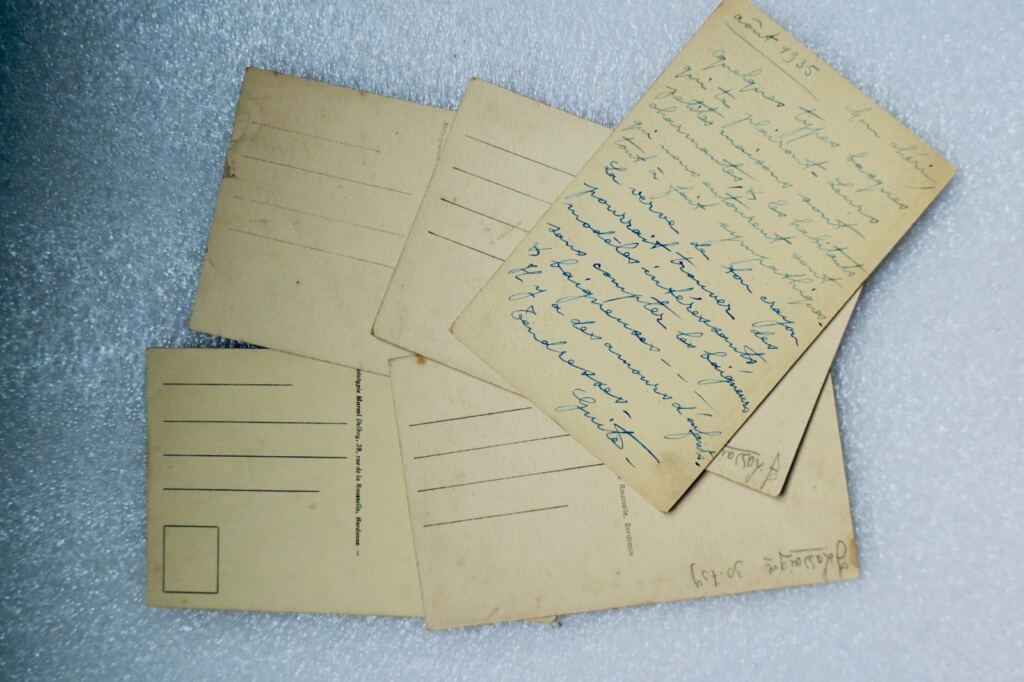 août 1935
Mon chéri,
quelques types basques
qui te plairont - Leurs
petites maisons sont
charmantes & les habitants
qui nous entourent sont
tout à fait sympathiques.
La verve de ton crayon
pourrait trouver des
modèles intéressants,
sans compter les baigneurs
& baigneuses - -
Il y a des amours d'enfants.
Tendresses -
Guite -
Marcel Delboy, 39, rue de la Rousselle, Bordeaux -
Rousselle, Bordeaux